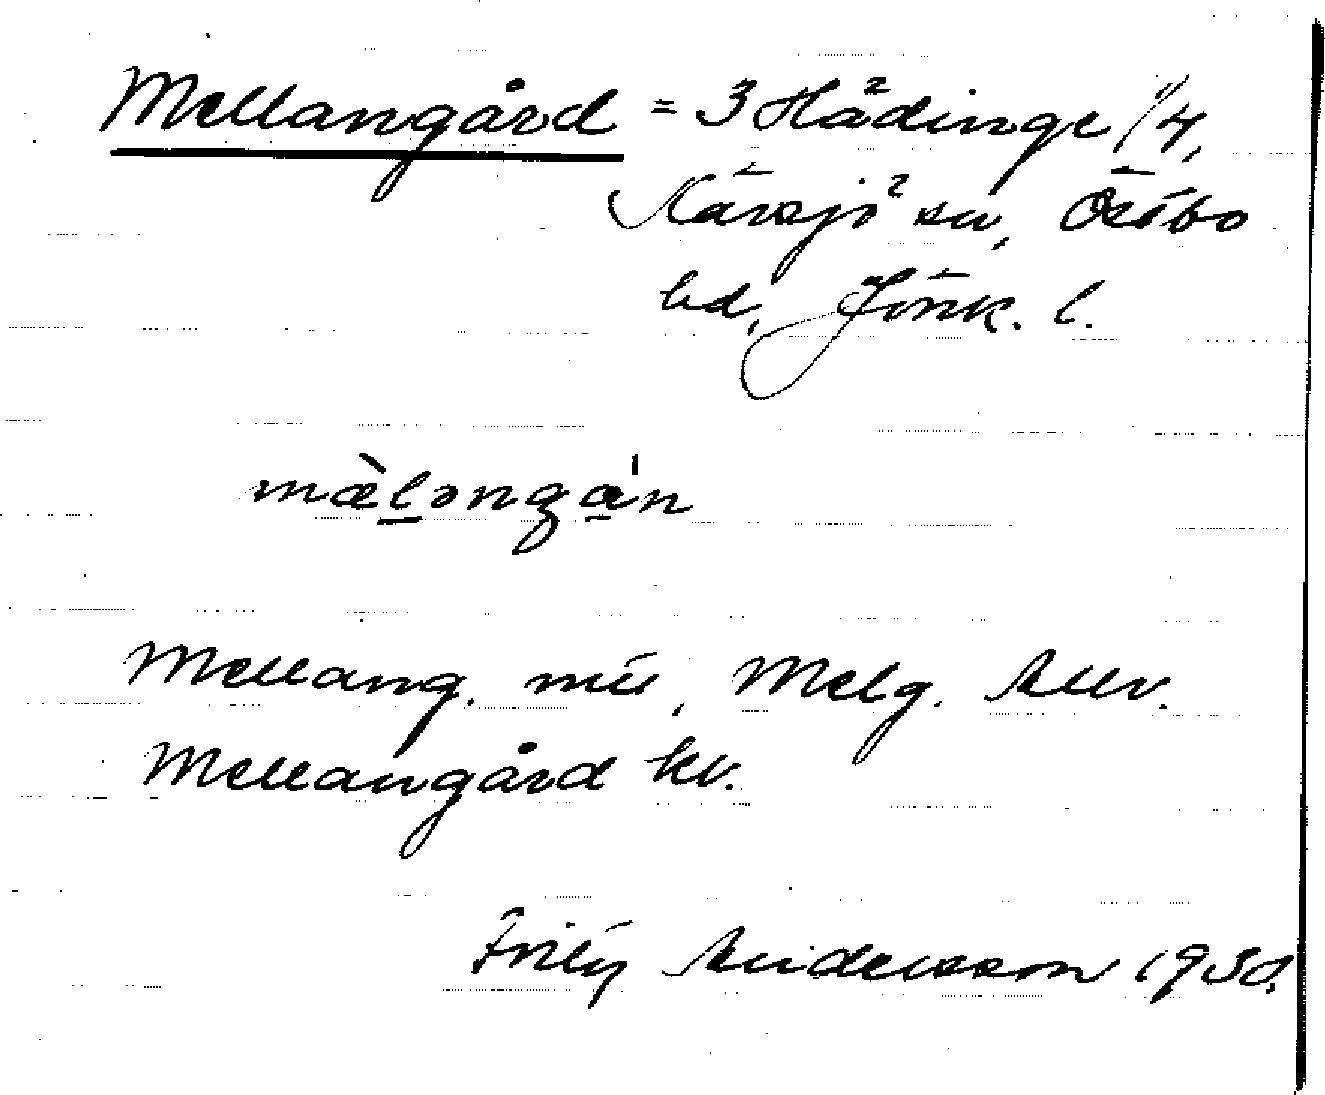 Mellangård = 3 Hådinge 1/4,
Kävsjö sn, Östbo
hd, Jönk. l.
mæ̀lɔngán
Mellang. mtl, Melg. Allv.
Mellangård kv.
Fritz Andersson 1930.